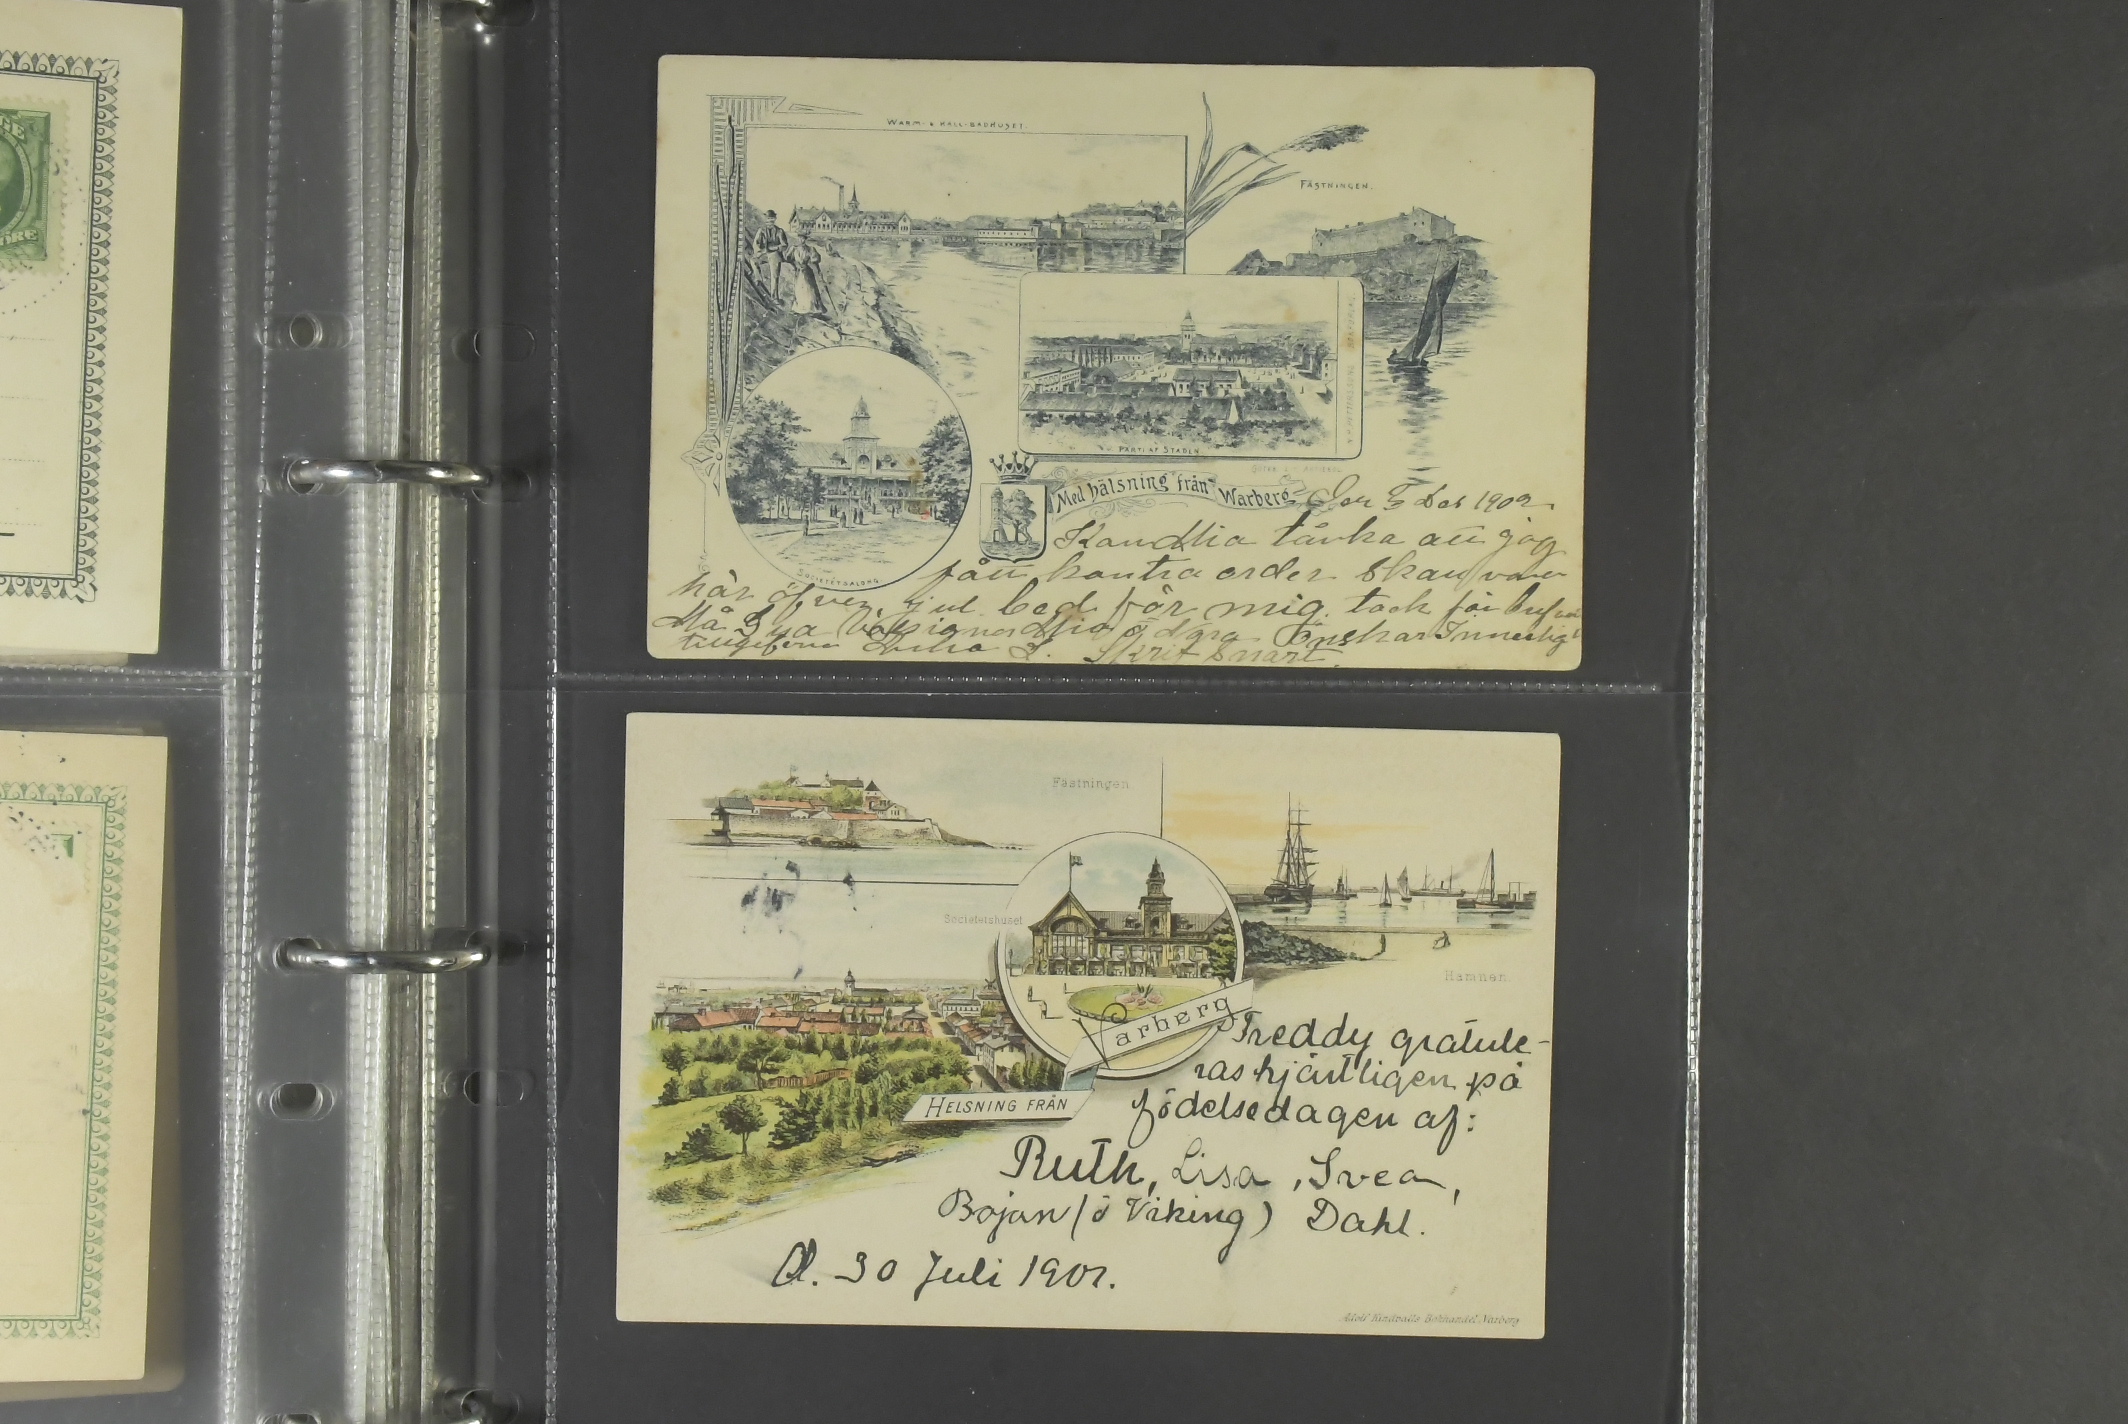 GE
ÖRE
WARM- & KALL-BADHUSET.
FÄSTNINGEN.
PARTI AF STADEN
SOCIETETSALONG
Med hälsning från Warberg
Den Dec 1902
Kan tänka att jag
fått kontra order skall vara
här öfver jul. bed för mig. tack för
Må Önskar Innerligt
Skrif Snart.
Fästningen.
Societetshuset
Hamnen.
Varberg
HELSNING FRÅN
Freddy gratule-
ras hjärtligen på
födelsedagen af:
Ruth, Lisa, Svea,
Bojan (ö Viking) Dahl.
d. 30 Juli 1901.
Adolf Kindvalls Bokhandel, Varberg